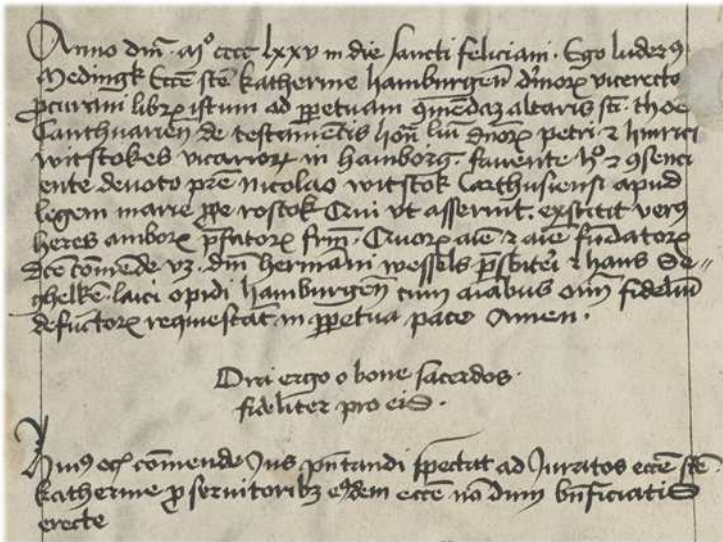 Anno dm̄. Mº cccc lxxv in die sancti feliciani. Ego luderꝰ
Medingk Ecc̄e ste katherine hamburgen̄ dn̄oꝝ vicerecto
ꝓcuravi libꝝ istum ad ꝑpetuam ꝯmendaz altaris sc̄i. thoe
Cantuarien̄ de testamentis hon̄ liu dnoꝝ petri ⁊ hinrici
witstokes vicarioꝝ in hamborg. favente hº ⁊ ꝯsenci
ente devoto pr̄e nicolao witstok Carthusiensi apud
legem marie ꝓpe rostok Qui vt asseruit. exstitit verꝰ
heres amboꝝ p̄fatoꝝ frm̄. Quoꝝ aīe ⁊ aīe fūdatoꝝ
dc̄e cōmende vꝫ. dm̄ hermāni wessels p̄sbiteri ⁊ hans Se〃
ghelkē. laici opidi hamburgen̄ cum aīabus oīm̄ fideliū
defūctoꝝ requiescāt in ꝑpetua pace Amen.
Ora ergo o bone sacerdos.
fideliter pro eis.
Huiꝰ commende Jus pn̄tandi spectat ad Juratos ecc̄e ste.
katherine ꝓ servitoribꝫ eꝰdem ecc̄e nō dum bn̄ficiatis
erecte